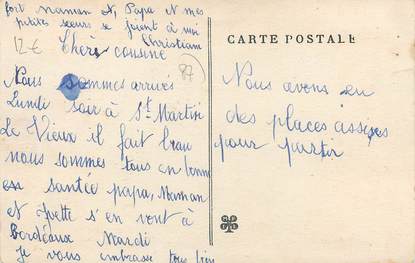 fort maman et Papa et mes
petites sœurs se joient à moi
Christiane
12 €
Chère cousine
87
Nous sommes arrivés
Lundi soir à St. Martin
Le Vieux il fait beau
nous sommes tous en bonne
santée papa, Maman
et Yvette s'en vont à
Bordeaux Mardi
je vous embrasse tous bien
CARTE POSTALE
Nous avons eu
des places assises
pour partir